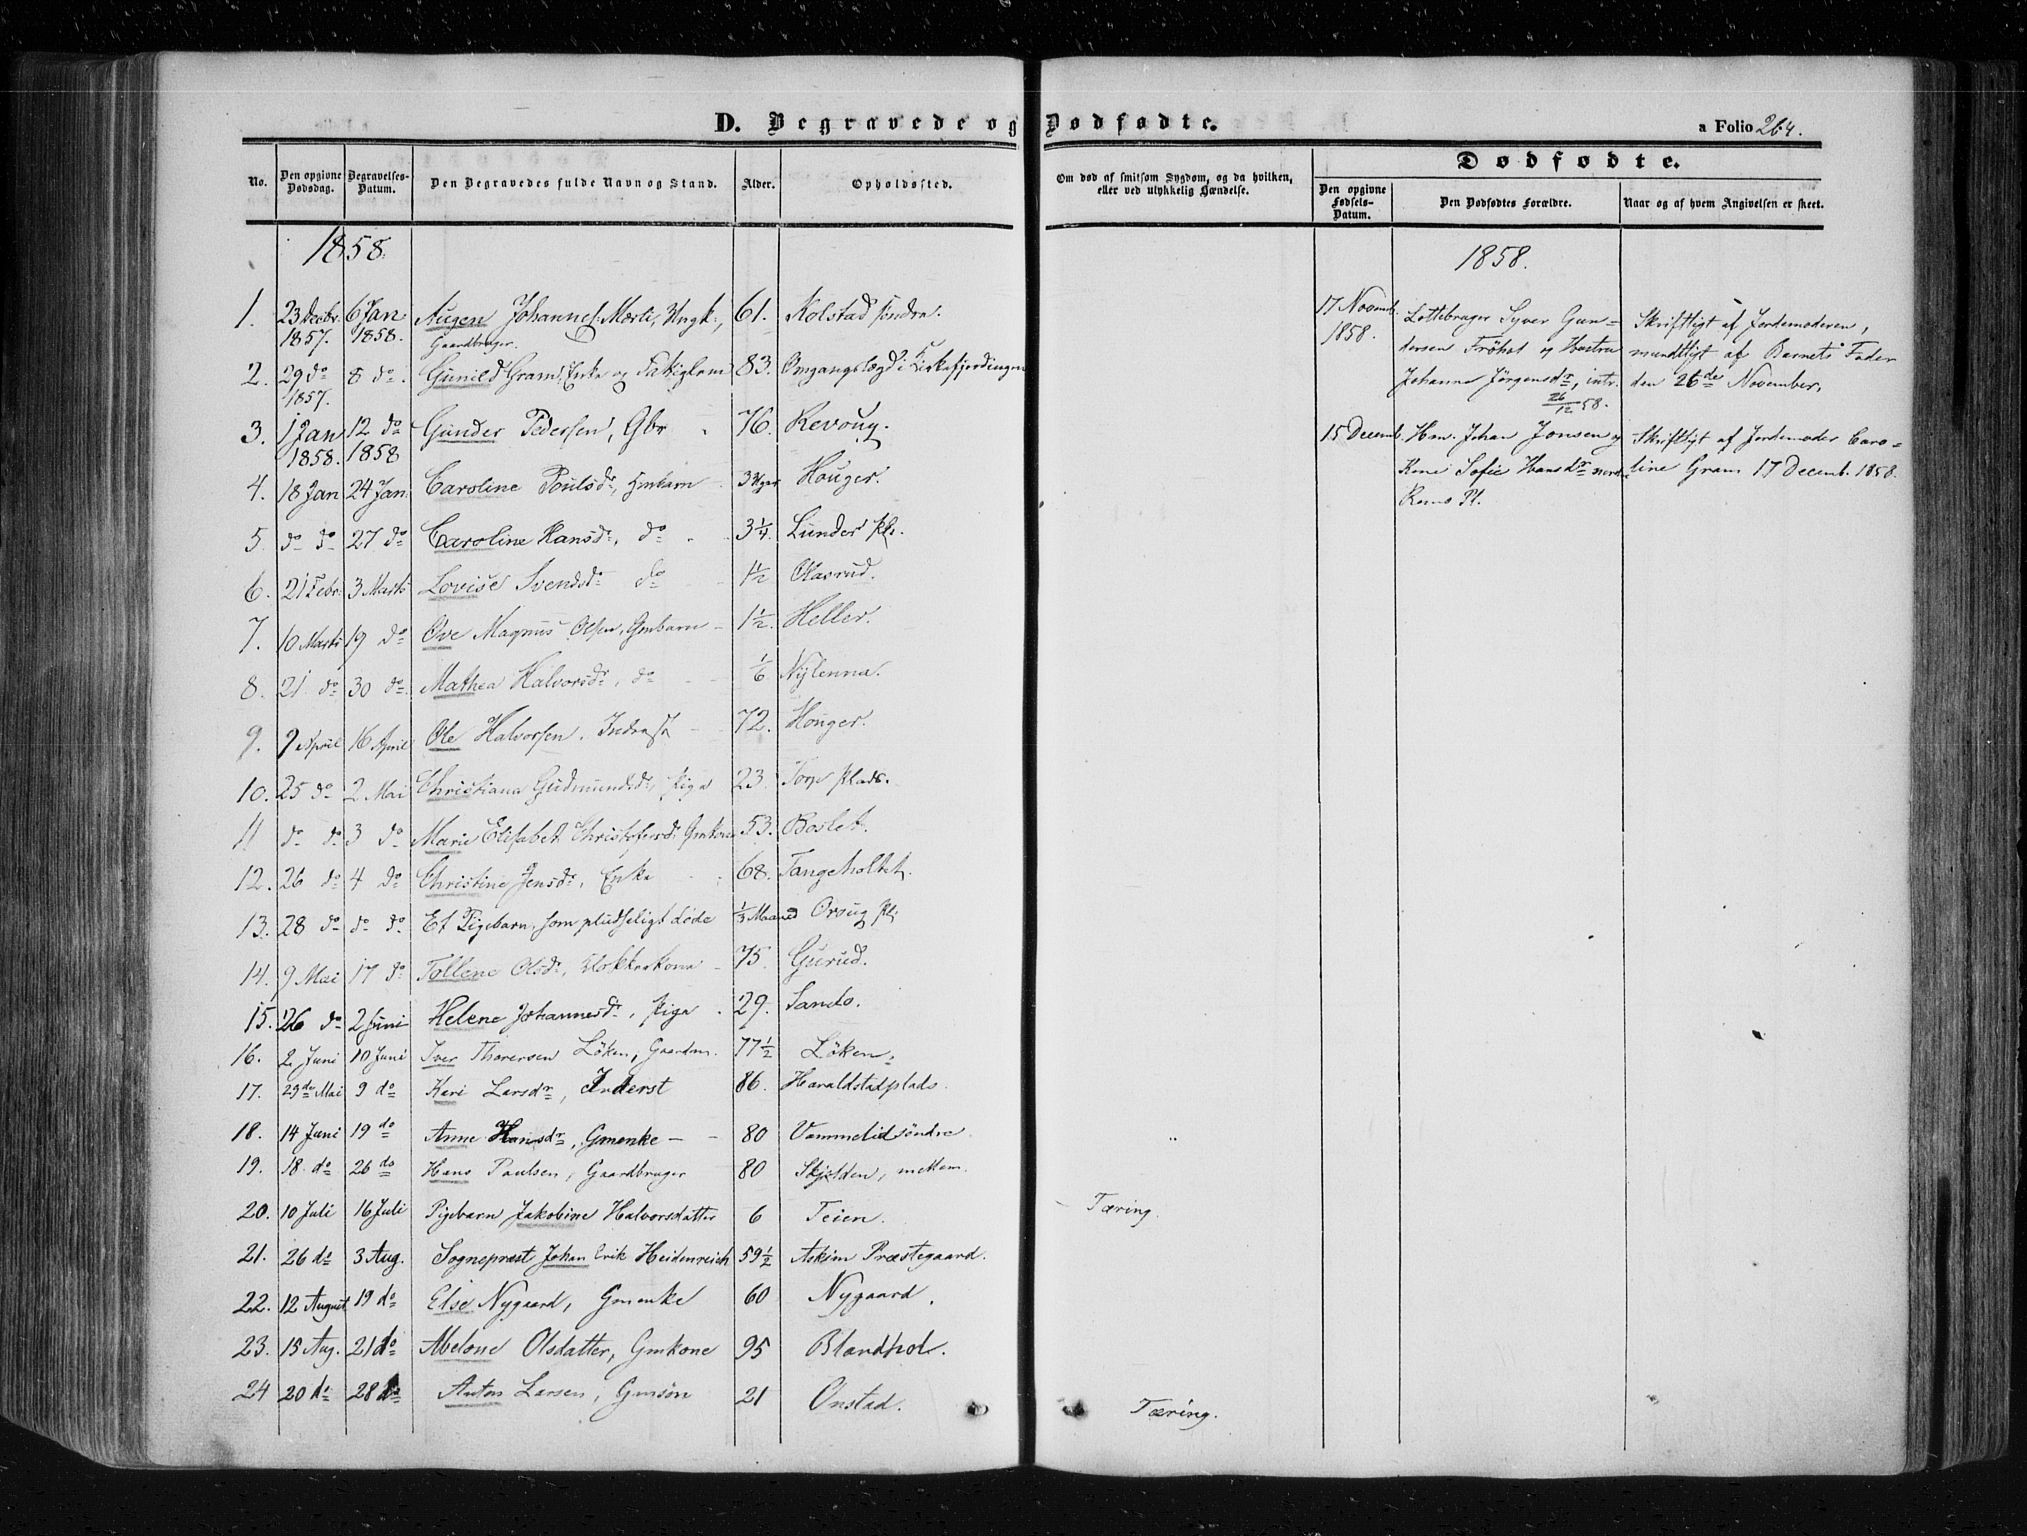 D. Begravede og Dødfødte.
a Folio 264.
No.
Den opgivne Dødsdag.
Begravelses-Datum.
Den Begravedes fulde Navn og Stand.
Alder.
Opholdssted.
Om død af smitsom Sygdom, og da hvilken, eller ved ulykkelig Hændelse.
Dødfødte.
Den opgivne Fødsels-Datum.
Den Dødfødtes Forældre.
Naar og af hvem Angivelsen er skeet.
1858.
1. 23 Decbr. 1857. 6 Jan 1858. Augen Johannes. Morti, Ungk., Gaardbruger. 61. Kolstad søndre.
2. 29 do 1857. 8 do. Gunild Gram, Enke og Fattiglem 83. Omgangslægd i Kirkefjerdingen
3. 1 Jan 1858. 12 do 1858 Gunder Pedersen, Gbr. 76. Revoug.
4. 18 Jan 24 Jan. Caroline Poulsdr, Gmbarn 3 Uger Houger.
5. do do 27 do Caroline Hansdr, do 3 1/4. Lunder pls.
6. 21 Febr. 3 Marts Lovise Svendsdr do 1 1/2 Olasrud.
7. 10 Marts 19 do Ove Magnus Olsen, Gmbarn 1 1/2. Heller.
8. 21 do 30 do. Mathea Halvorsdr, do 1/6 Nylenna.
9. 9 April 16 April Ole Halvorsen, Inderst 72. Houger.
10. 25 do 2 Mai Christiana Gudmundsdr, Piga 23. Torp Plads.
11 do do 3 do Marie Elisabet Christofersdr Gmkone 53. Boslet.
12. 26 do 4 do Christine Jensdr, Enke 68. Tangeholtet.
13. 28 do do do Et Pigebarn, som pludseligt døde 1/3 Maaned Oroug pl.
14. 9 Mai 17 do Tollene Olsdr, Klokkerkone 75. Gurud.
15. 26 do 2 Juni Helene Johannesdr, Piga 29. Sando.
16. 2 Juni 10 Juni Iver Thoresen Löken, Gaardm. 77 1/2 Löken.
17. 29de Mai 9 do Kari Larsdr, Inderst 86. Haraldstadplads.
18. 14 Juni 19 do Anne Hansdr, Gmenke 80 Vammelid söndre
19. 18 do 26 do Hans Paulsen, Gaardbruger 80 Skjolden, mellem.
20. 10 Juli 16 Juli Pigebarn Jakobine Halvorsdatter 6 Teien. Tæring.
21. 26 do 3 Aug. Sogneprest Johan Erik Heidenreich 59 1/2 Askim Præstegaard.
22. 12 August 19 do Else Nygaard, Gmenke 60 Nygaard.
23. 15 Aug. 21 do Abelone Olsdatter, Gmkone 95 Blandhol.
24 20 do 28 do Anton Larsen, Gmsön 21 Onstad. Tæring.
1858.
17 Novemb. 1858.
Lottebruger Syver Gun-
dersen Fröhol og Hustru
Johanne Jörgensdr, intr.
26/12 58.
Skriftligt af Jordemoderen,
mundtligt af Barnets Fader
den 26de November.
15 Decemb.
Hm. Johan Jonsen og
Kone Sofie Hansdr nord
Romo Pl.
Skriftligt af Jordemoder Caro-
line Gram 17 Decemb. 1858.